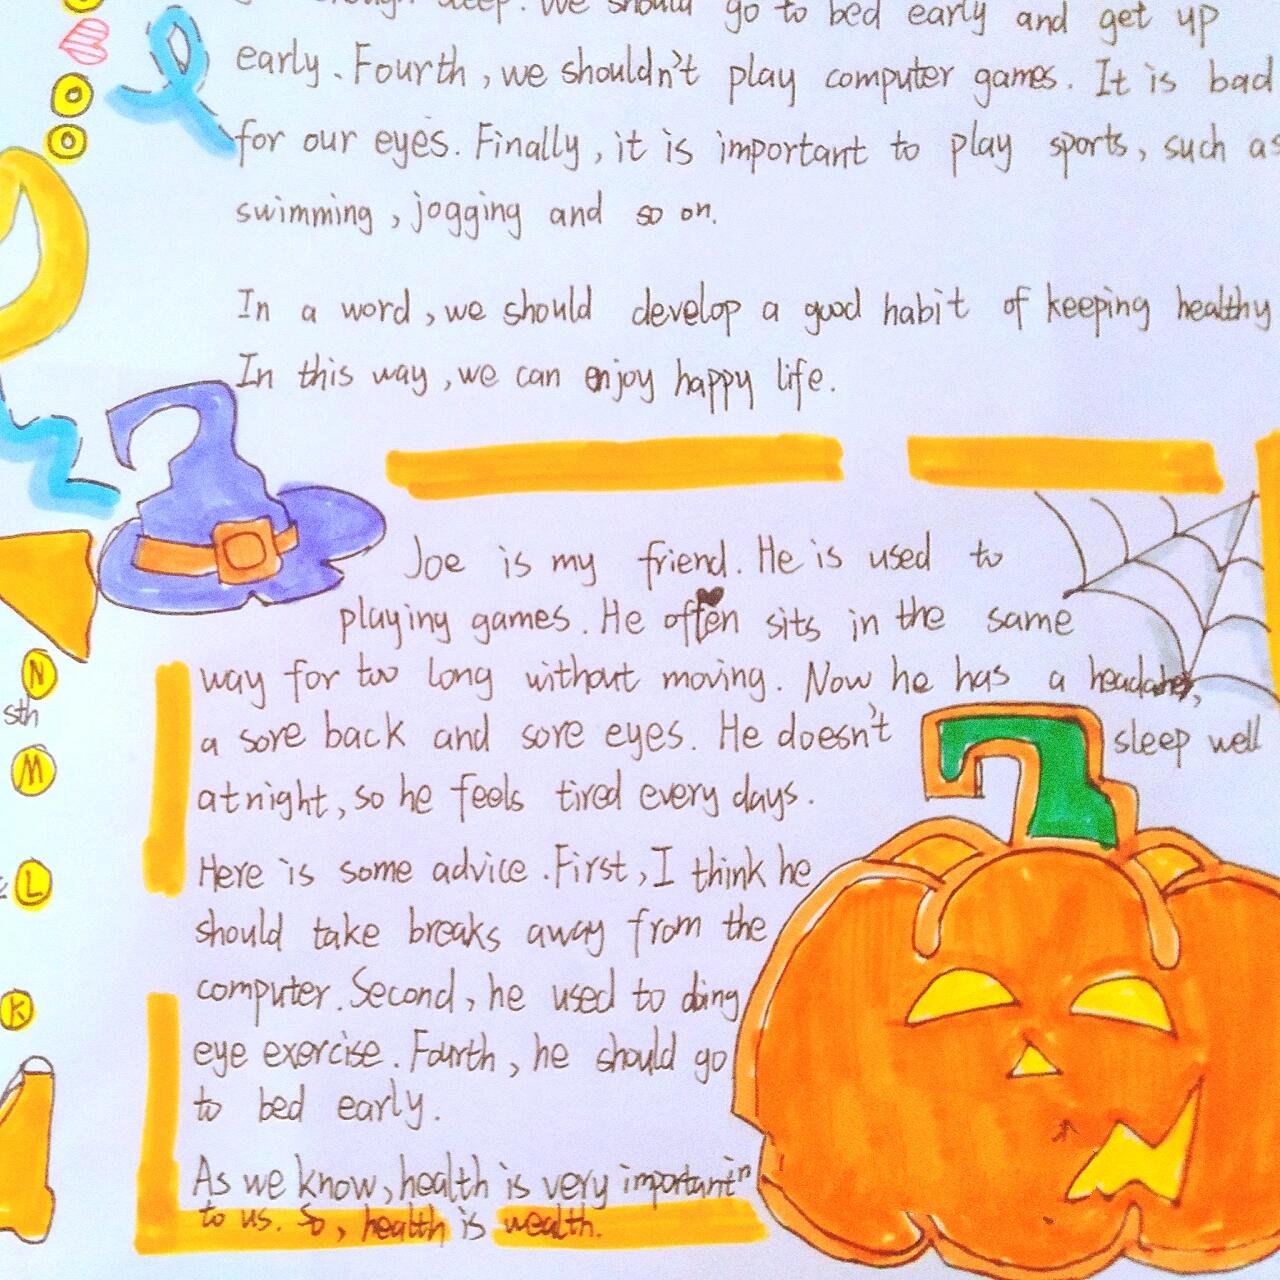 sleep. We should go to bed early and get up
early. Fourth, we shouldn't play computer games. It is bad
for our eyes. Finally, it is important to play sports, such as
swimming, jogging and so on.
In a word, we should develop a good habit of keeping healthy
In this way, we can enjoy happy life.
Joe is my friend. He is used to
playing games. He often sits in the same
way for too long without moving. Now he has a headache,
a sore back and sore eyes. He doesn't sleep well
at night, so he feels tired every days.
Here is some advice. First, I think he
should take breaks away from the
computer. Second, he used to doing
eye exercise. Fourth, he should go
to bed early.
As we know, health is very important
to us. So, health is wealth.
N
sth
M
L
K